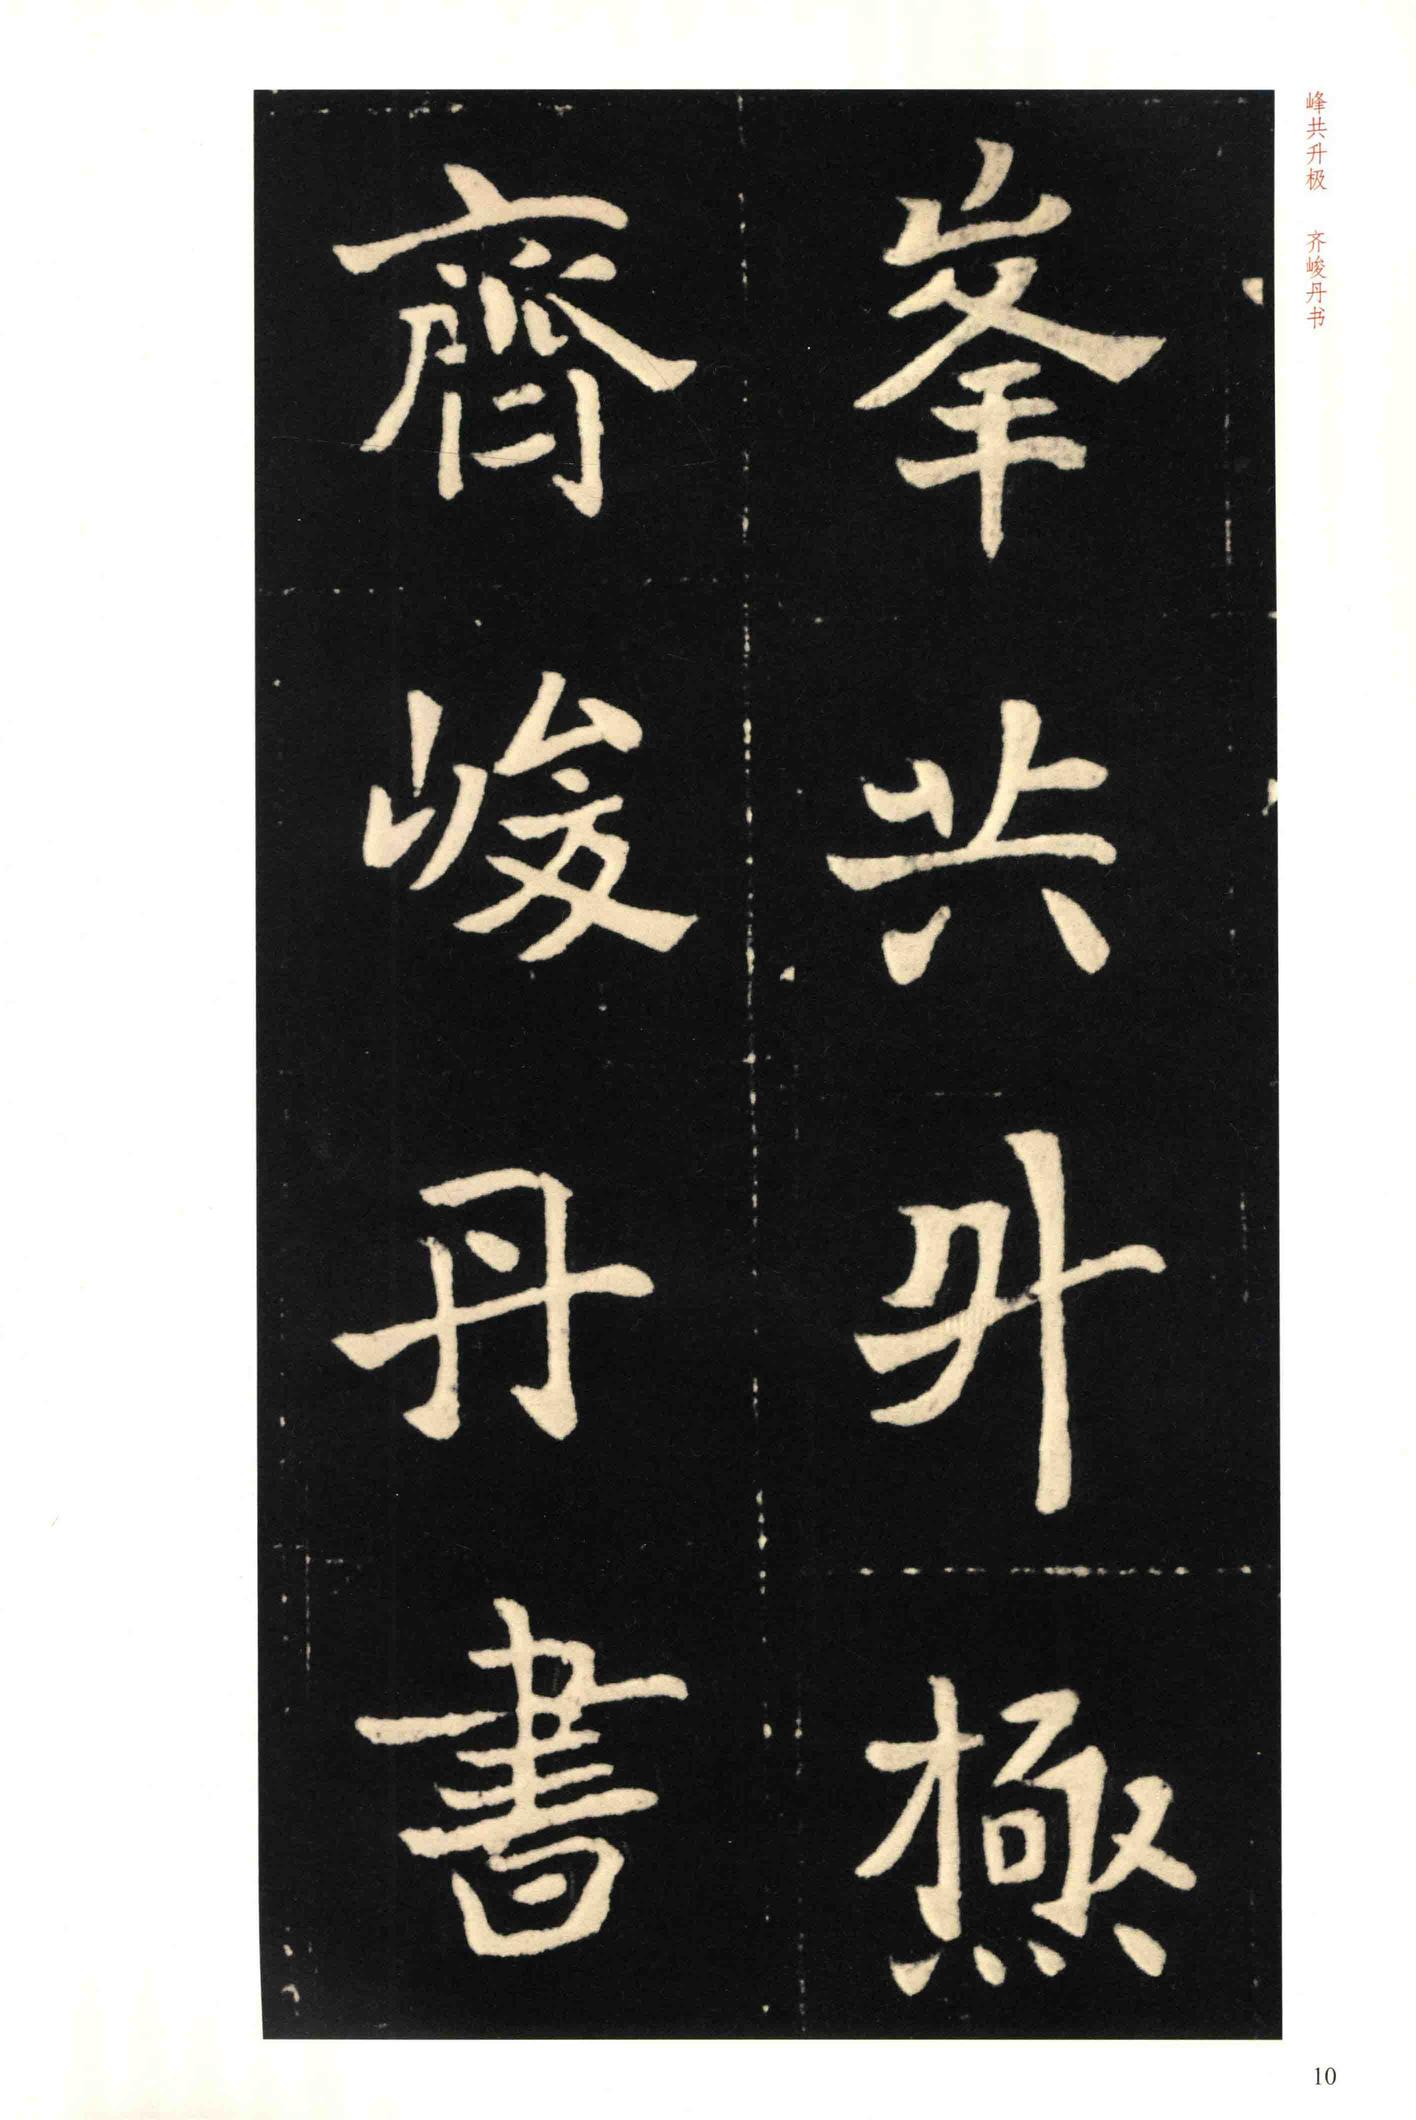 峰共升极 齐峻丹书
峯共升極
齊峻丹書
10